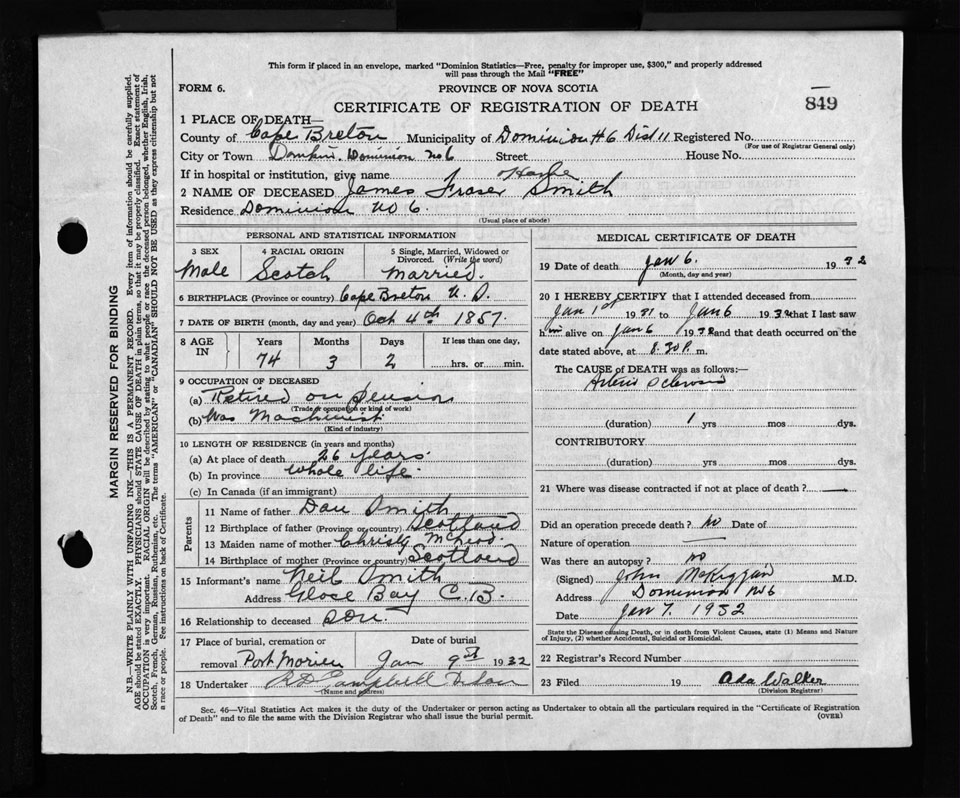 This form if placed in an envelope, marked "Dominion Statistics—Free, penalty for improper use, $300," and properly addressed
will pass through the Mail "FREE"
FORM 6.
PROVINCE OF NOVA SCOTIA
CERTIFICATE OF REGISTRATION OF DEATH
849
1 PLACE OF DEATH—
County of Cape Breton Municipality of Dominion #6 Dist 11 Registered No.
(For use of Registrar General only)
City or Town Donkin Dominion No 6 Street House No.
If in hospital or institution, give name Home
2 NAME OF DECEASED James Fraser Smith
Residence Dominion No 6.
(Usual place of abode)
PERSONAL AND STATISTICAL INFORMATION
3 SEX
Male
4 RACIAL ORIGIN
Scotch
5 Single, Married, Widowed or Divorced. (Write the word)
Married.
6 BIRTHPLACE (Province or country) Cape Breton N. S.
7 DATE OF BIRTH (month, day and year) Oct 4th 1857.
8 AGE IN
Years Months Days If less than one day,
74 3 2 hrs. or min.
9 OCCUPATION OF DECEASED
(a) Retired on Pension
(Trade or occupation or kind of work)
(b) Was Machinist
(Kind of industry)
10 LENGTH OF RESIDENCE (in years and months)
(a) At place of death 26 years.
(b) In province Whole life
(c) In Canada (if an immigrant)
Parents
11 Name of father Dan Smith
12 Birthplace of father (Province or country) Scotland
13 Maiden name of mother Christy McLeod.
14 Birthplace of mother (Province or country) Scotland
15 Informant's name Neil Smith
Address Glace Bay C.B.
16 Relationship to deceased Son.
17 Place of burial, cremation or removal Port Morien
Date of burial
Jan 9th 1932
18 Undertaker Campbell
(Name and address)
MEDICAL CERTIFICATE OF DEATH
19 Date of death Jan 6. 1932
(Month, day and year)
20 I HEREBY CERTIFY that I attended deceased from
Jan 1st 1931 to Jan 6 1932 that I last saw
him alive on Jan 6 1932 and that death occurred on the
date stated above, at 8.30 P. m.
The CAUSE OF DEATH was as follows:—
Arterio Sclerosis
(duration) 1 yrs mos dys.
CONTRIBUTORY
(duration) yrs mos dys.
21 Where was disease contracted if not at place of death?
Did an operation precede death? No Date of
Nature of operation
Was there an autopsy? No
(Signed) John McKiggan M.D.
Address Dominion No 6
Date Jan 7. 1932
State the Disease causing Death, or in death from Violent Causes, state (1) Means and Nature
of Injury, (2) whether Accidental, Suicidal or Homicidal.
22 Registrar's Record Number
23 Filed 19 Ada Walker
(Division Registrar)
Sec. 46—Vital Statistics Act makes it the duty of the Undertaker or person acting as Undertaker to obtain all the particulars required in the "Certificate of Registration
of Death" and to file the same with the Division Registrar who shall issue the burial permit.
(OVER)
MARGIN RESERVED FOR BINDING
N.B.—WRITE PLAINLY WITH UNFADING INK—THIS IS A PERMANENT RECORD. Every item of information should be carefully supplied.
AGE should be stated EXACTLY. PHYSICIANS should STATE CAUSE OF DEATH in plain terms, so that it may be properly classified. Exact statement of
OCCUPATION is very important. RACIAL ORIGIN will be described by stating to what people or race the deceased person belonged, whether English, Irish,
Scotch, French, German, Russian, Ruthenian, etc. The terms "AMERICAN" or "CANADIAN" SHOULD NOT BE USED as they express citizenship but not
a race or people. See instructions on back of Certificate.